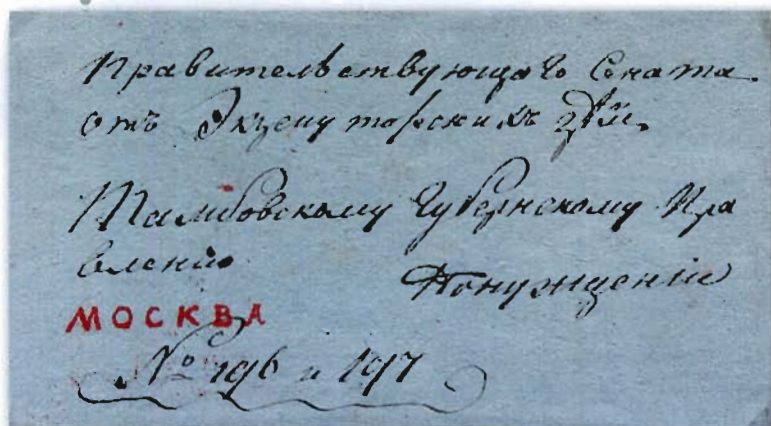 Правительствующаго Сената
отъ Экзекуторскихъ дѣлъ
Тамбовскому Губернскому Пра
вленію
Понужденіи
МОСКВА
№ 196 и 197